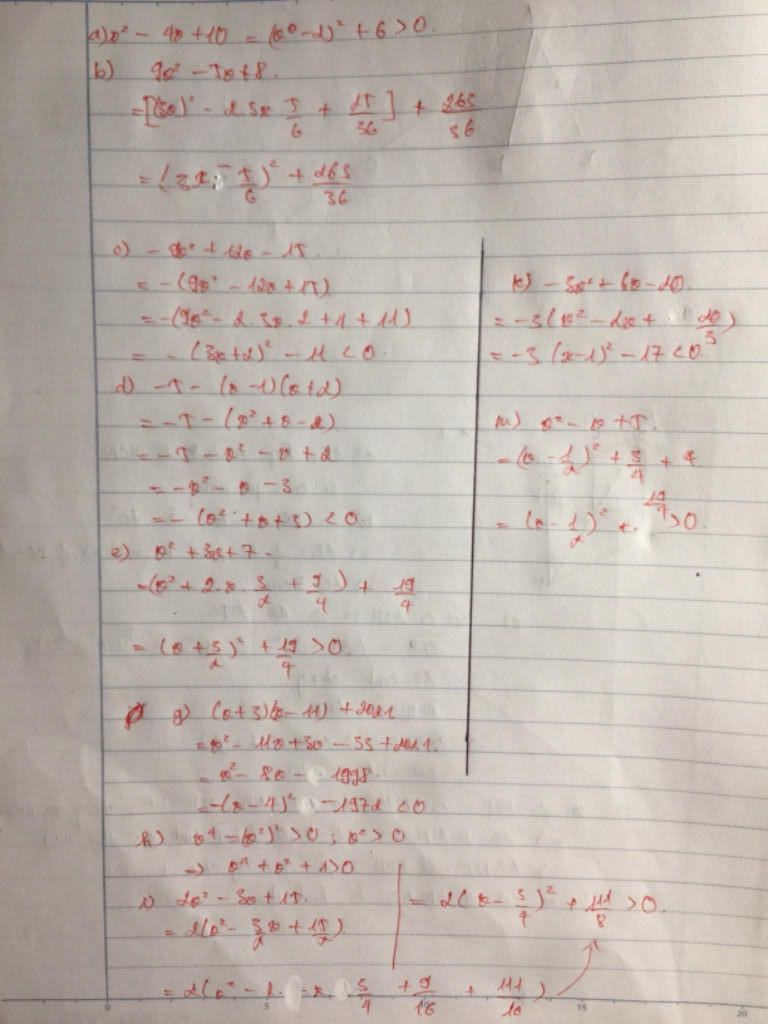 a) x² - 4x + 10 = (x - 2)² + 6 > 0.
b) 9x² - 5x + 8.
= [(3x)² - 2 3x 5/6 + 25/36] + 263/36
= (3x - 5/6)² + 263/36
c) - 9x² + 12x - 15
= - (9x² - 12x + 15)
= - (9x² - 2. 3x. 2 + 4 + 11)
= - (3x + 2)² - 11 < 0.
d) - 5 - (x - 1)(x + 2)
= - 5 - (x² + x - 2)
= - 5 - x² - x + 2
= - x² - x - 3
= - (x² + x + 3) < 0.
e) x² + 3x + 7.
= (x² + 2. x. 3/2 + 9/4) + 19/4
= (x + 3/2)² + 19/4 > 0.
g) (x + 3)(x - 11) + 2021
= x² - 11x + 3x - 33 + 2021.
= x² - 8x - 1998
= - (x - 4)² - 1972 < 0
h) x⁴ = (x²)² > 0 ; x² > 0
=> x⁴ + x² + 1 > 0
i) 2x² - 3x + 15.
= 2(x² - 3/2 x + 15/2)
= 2(x² - 2. x 3/4 + 9/16 + 111/16)
= 2(x - 3/4)² + 111/8 > 0.
k) - 3x² + 6x - 20.
= - 3(x² - 2x + 20/3)
= - 3 (x - 1)² - 17 < 0.
m) x² - x + 5.
= (x - 1/2)² + 3/4 + 4
= (x - 1/2)² + 19/4 > 0.